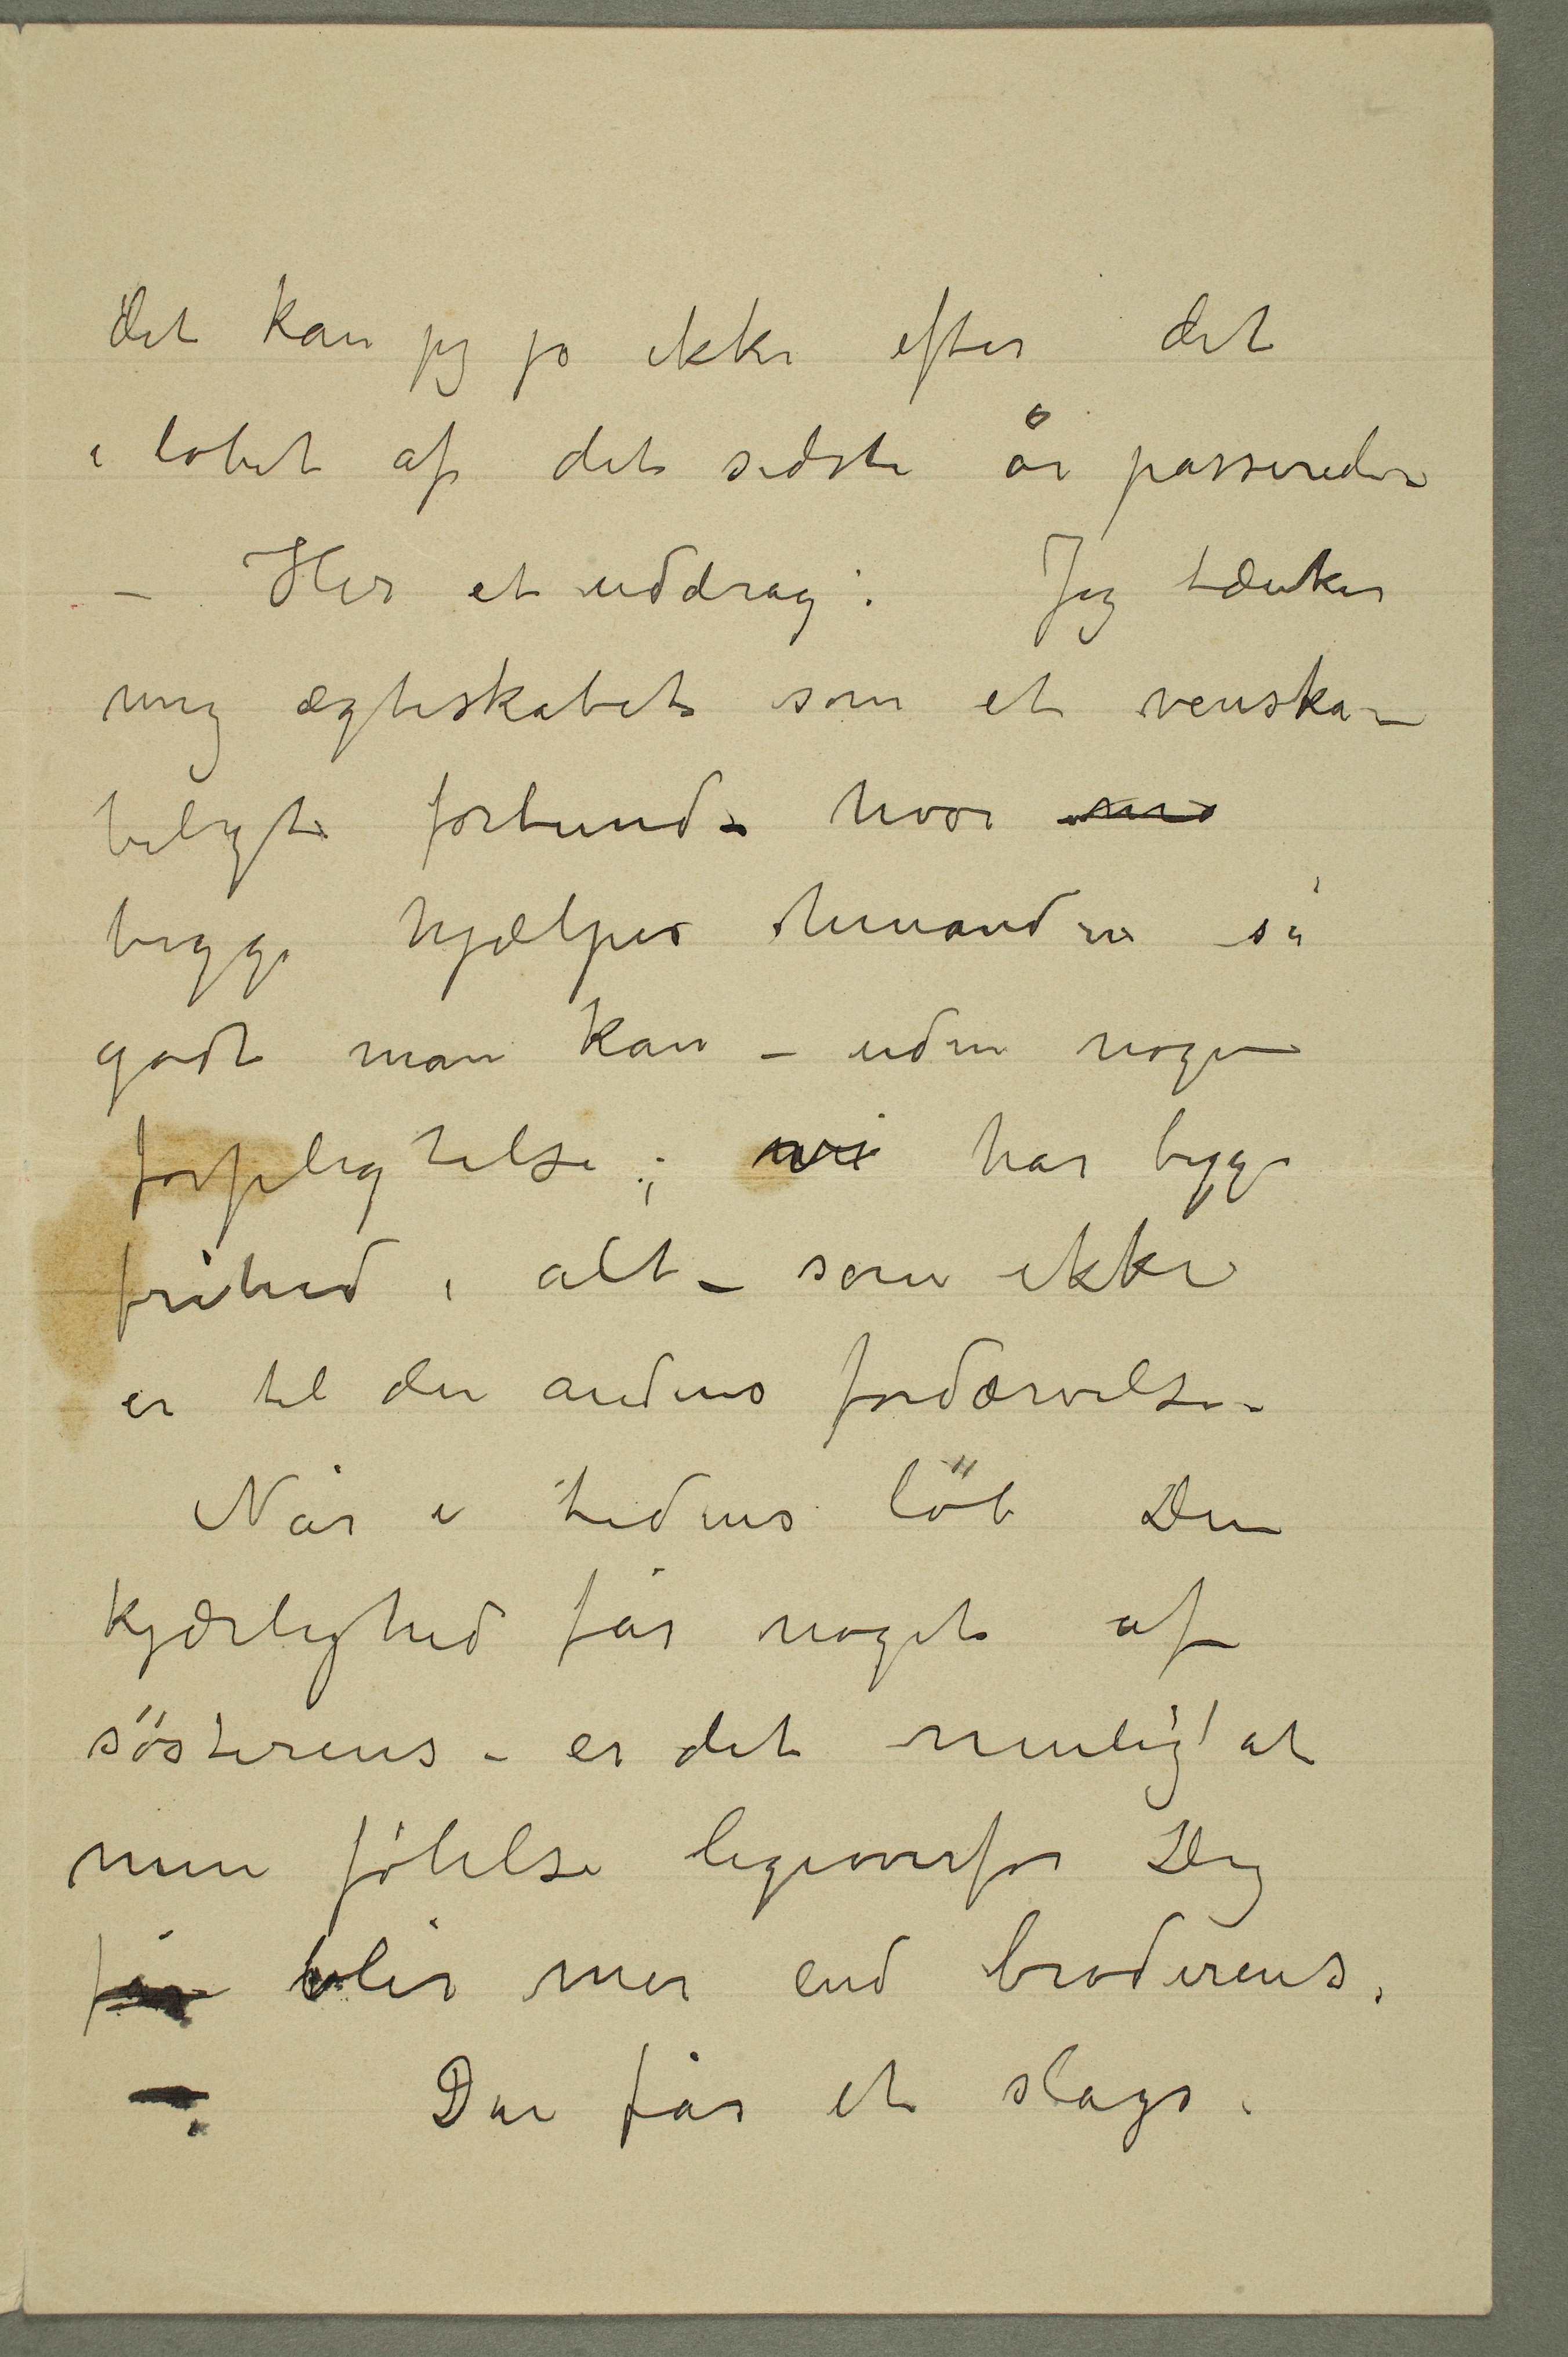 det kan jeg jo ikke efter det
i løbet af det sidste år passerede
– Her et uddrag: Jeg tænker
mig ægteskabet som et venska-
beligt forbund – hvor
begge hjælper hinanden så
godt man kan – uden nogen
forpligtelse; vi har begge
frihed i alt – som ikke
er til den andens fordærvelse.
Når i tidens löb Din
kjærlighed får noget af
sösterens – er det mulig at
min følelse ligeoverfor Dig
får blir mer end broderens.
– Du får et slags